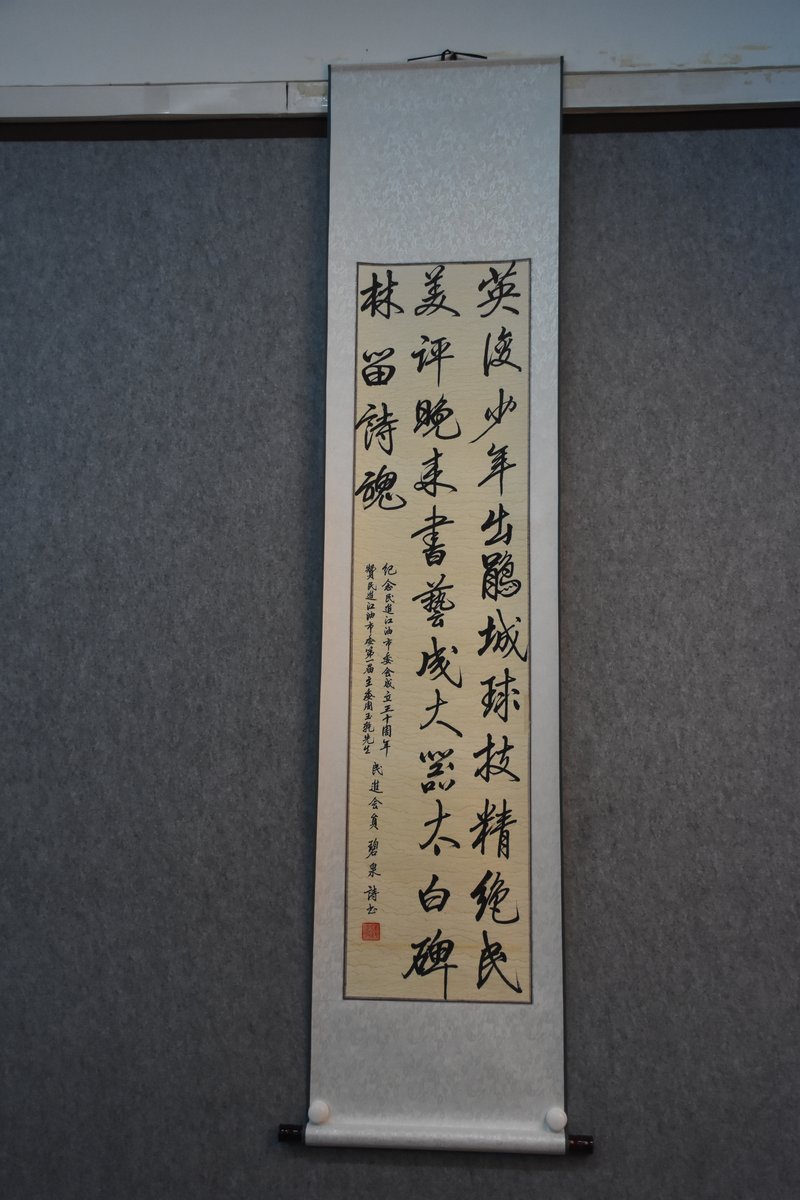 英俊少年出鹃城球技精绝民
美评晚来書藝成大器太白碑
林留詩魂
纪念民進江油市委会成立三十周年
贊民進江油市委第一届主委周玉乾先生
民進会員 碧泉 詩书